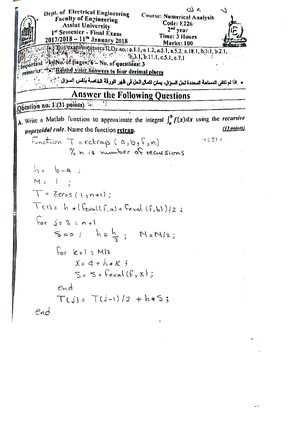 Dept. of Electrical Engineering
Faculty of Engineering
Assiut University
1st Semester - Final Exam
2017/2018 – 11th January 2018
Course: Numerical Analysis
Code: E226
2nd year
Time: 3 Hours
Marks: 100
No. of questions: 3
Round your answers to four decimal places
Answer the Following Questions
Question no. 1 (31 points)
A. Write a Matlab function to approximate the integral ∫ₐᵇ f(x)dx using the recursive
trapezoidal rule. Name the function retrap. (11 points)
function T = retrap (a,b,f,n)
% n is number of recursions
h = b-a;
M = 1;
T = zeros(1,n+1);
T(1) = h*(feval(f,a)+feval(f,b))/2;
for j = 2:n+1
S=0; h=h/2; M=M/2;
for k=1:M/2
X = a+h*k;
S = S+feval(f,X);
end
T(j) = T(j-1)/2 + h*S;
end